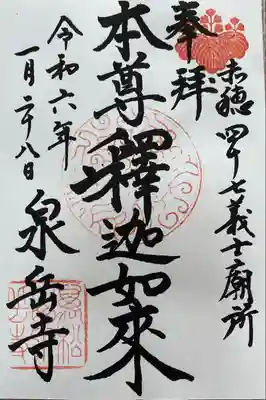 奉拝
赤穂四十七義士廟所
本尊釋迦如來
令和六年
一月二十八日
泉岳寺